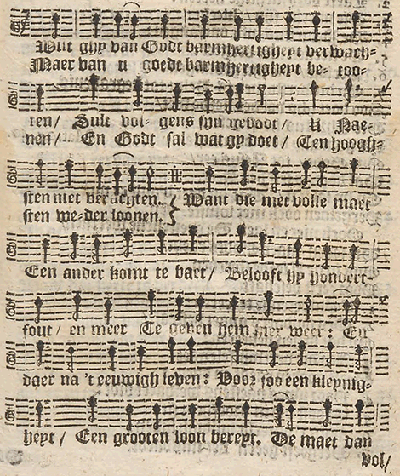 Wilt ghy van Godt barmhertigheyt verwach-
Maer van u goedt barmhertigheyt be- too-
ten/ Sult vol- gens sijn gebodt/ U Nae-
nen/ En Godt sal wat gy doet/ Ten hoogh-
sten niet verachten. Want die met volle maet
sten we-der loonen.
Een ander komt te baet/ Belooft hy hondert-
fout/ en meer Te geven hem hier weer: En
daer na 't eeuwigh leven: Voor soo een kleynig-
heyt/ Een grooten loon bereyt. De maet dan
vol/